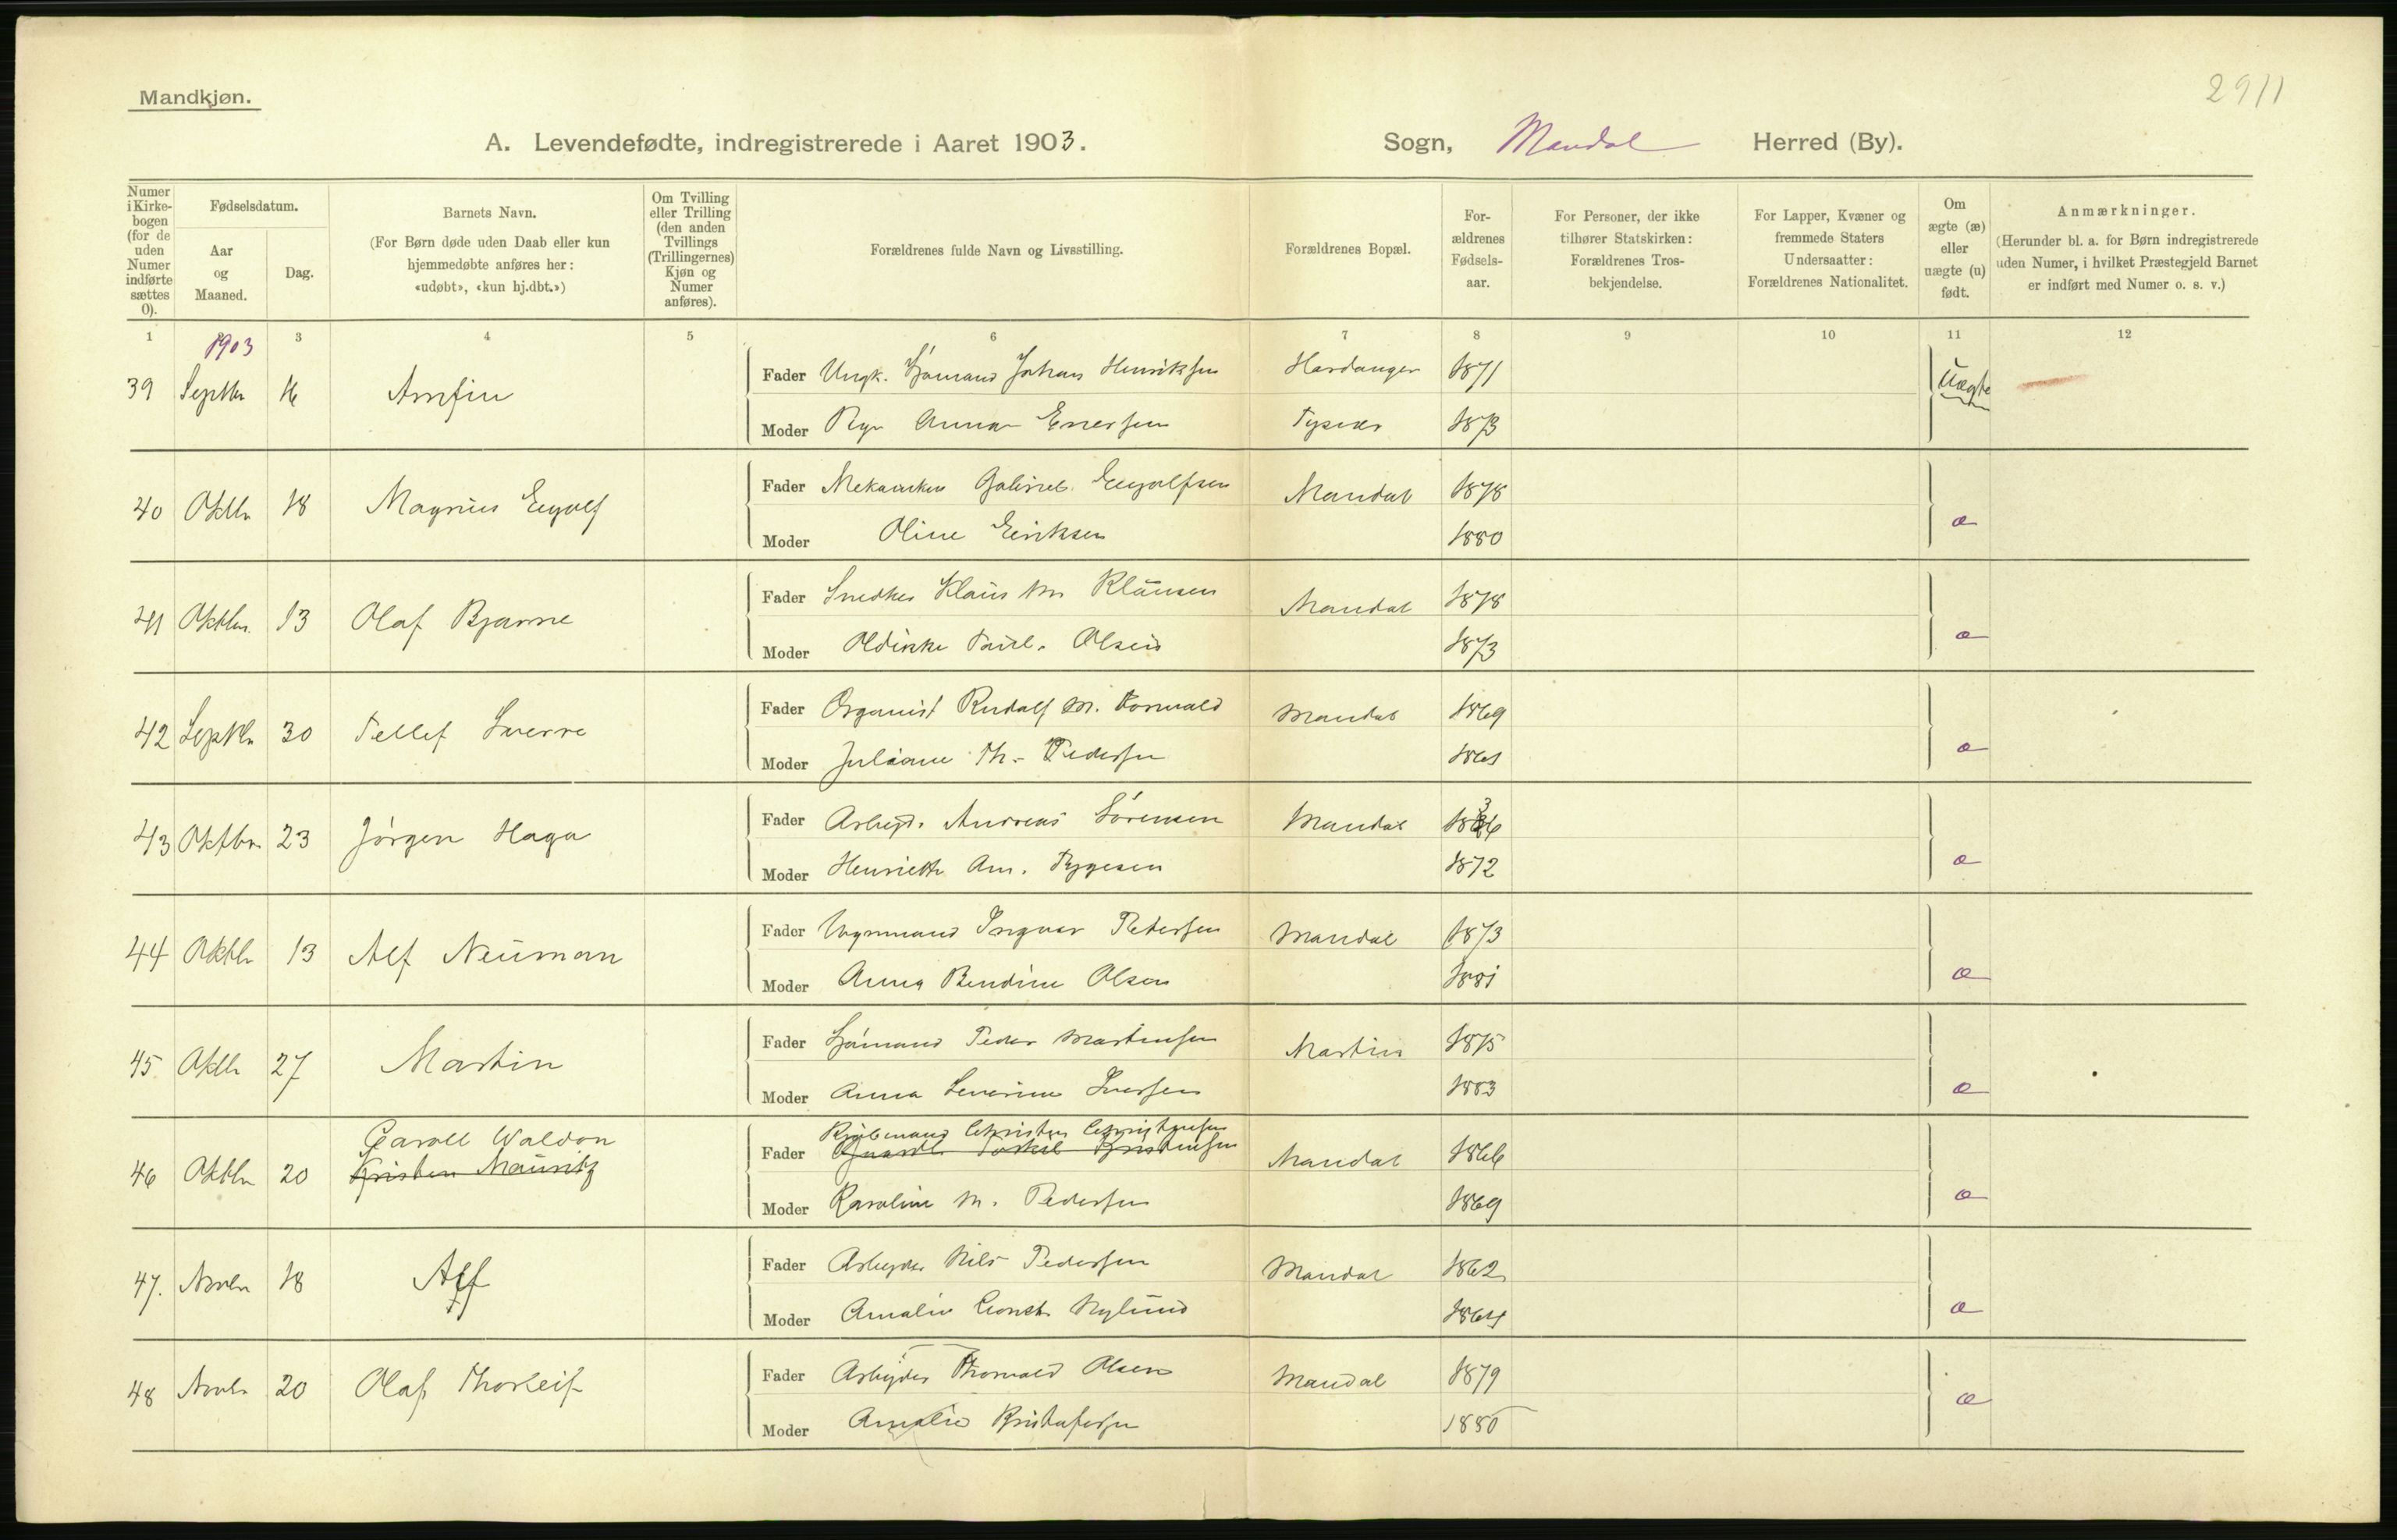 2911
Mandkjøn.
A. Levendefødte, indregistrerede i Aaret 1903. Sogn, Mandal Herred (By).
Numer i Kirke-bogen (for de uden Numer indførte sættes 0).
Fødselsdatum.
Aar og Maaned.
Dag.
Barnets Navn.
(For Børn døde uden Daab eller kun
hjemmedøbte anføres her:
«udøbt», «kun hj.dbt.»)
Om Tvilling
eller Trilling
(den anden
Tvillings
(Trillingernes)
Kjøn og
Numer
anføres).
Forældrenes fulde Navn og Livsstilling.
Forældrenes Bopæl.
For-
ældrenes
Fødsels-
aar.
For Personer, der ikke
tilhører Statskirken:
Forældrenes Tros-
bekjendelse.
For Lapper, Kvæner og
fremmede Staters
Undersaatter:
Forældrenes Nationalitet.
Om
ægte (æ)
eller
uægte (u)
født.
Anmærkninger.
(Herunder bl. a. for Børn indregistrerede
uden Numer, i hvilket Præstegjeld Barnet
er indført med Numer o. s. v.)
1 3 4 5 6 7 8 9 10 11 12
1903
39 Septbr 16 Arnfin Fader Ungk. Sjømand Johan Henriksen Hardanger 1871 Uægte
Moder Pige Anna Enersen 1873
40 Oktbr 18 Magnus Eyolf Fader Mekaniker Gabriel Eyolfsen Mandal 1878 æ
Moder Oline Eriksen 1880
41 Oktbr. 13 Olaf Bjarne Fader Snedker Klaus M. Klausen Mandal 1878 æ
Moder Oldikke Olsen 1873
42 Septbr 30 Tellef Sverre Fader Organist Rudolf M. Mandal 1869 æ
Moder Juliane Th. Pedersen
43 Oktbr. 23 Jörgen Haga Fader Arbejd. Andreas Sörensen Mandal æ
Moder Henriette Am. Tygesen 1872
44 Oktbr 13 Alf Neuman Fader Vognmand Ingvar Petersen Mandal 1873 æ
Moder Anna Bendine Olsen 1881
45 Oktbr 27 Martin Fader Sjömand Peder Martinsen Martin 1875 æ
Moder Anna Severine Iversen 1883
46 Oktbr 20 Caroll Waldon Kristen Mauritz Fader Kjöbmand Christen Christensen Kristensen Mandal 1866 æ
Moder Karoline M. Pedersen 1869
47. Novbr 18 Alf Fader Arbeyder Nils Pedersen Mandal 1862 æ
Moder Amalie Const. Nylund 1864
48 Novbr 20 Olaf Thorleif Fader Arbejder Thorvald Olsen Mandal 1879 æ
Moder Amalie Kristofersen 1880